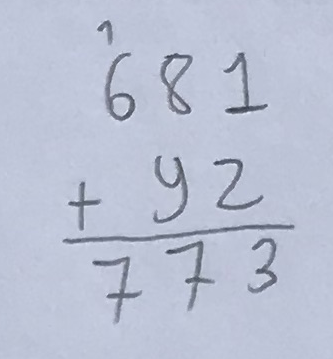 1
681
+ 92
773